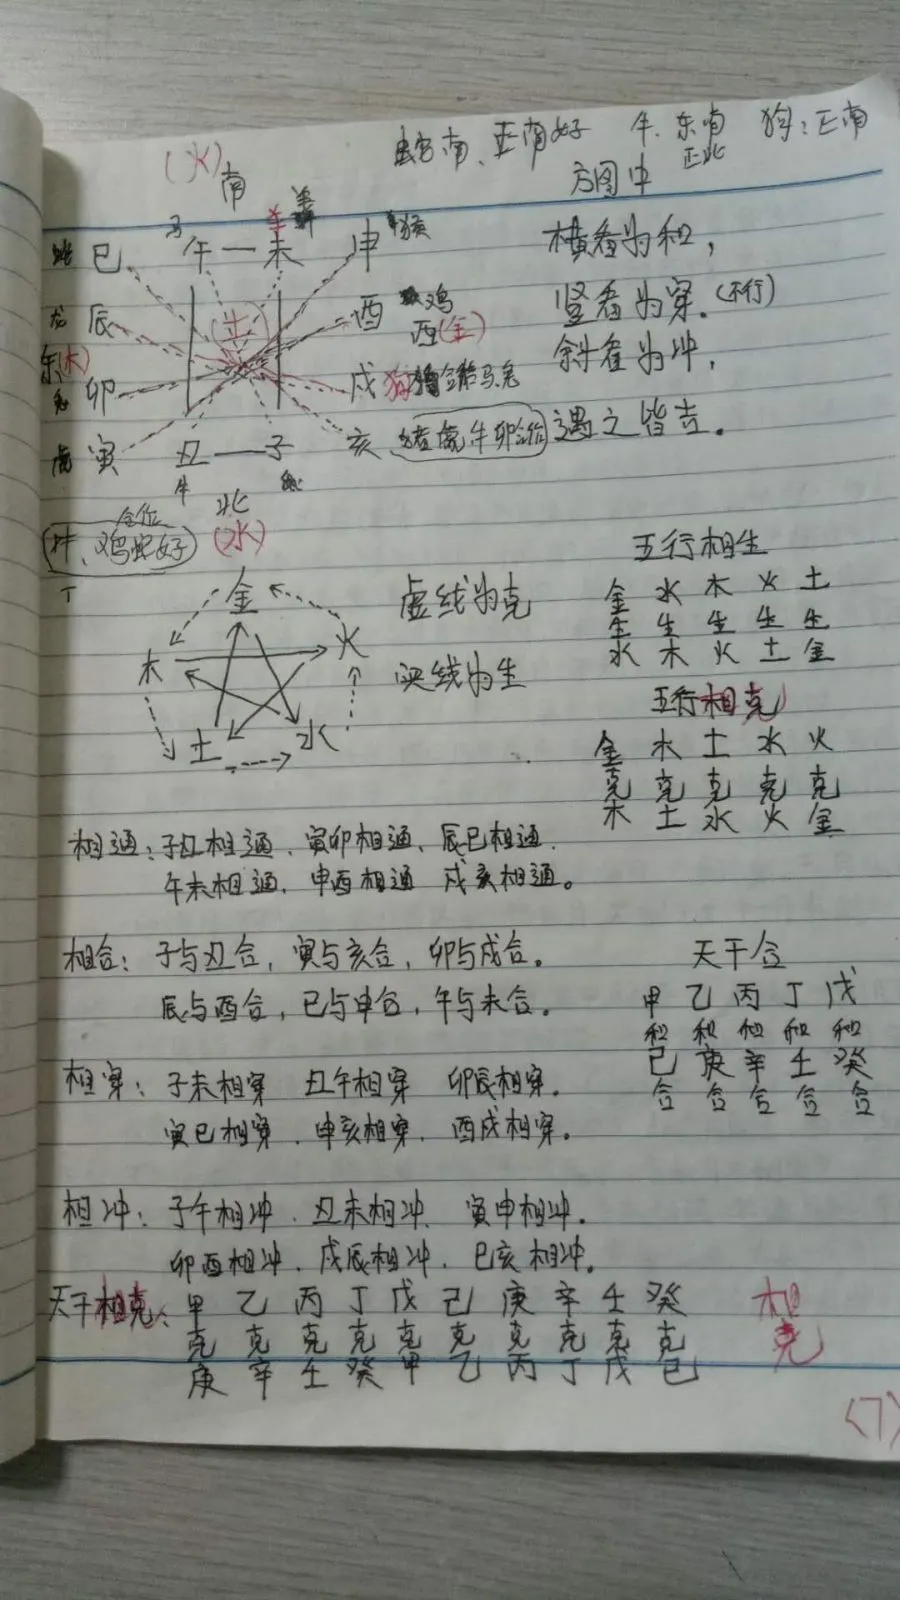 蛇南、正南好 牛.东南 狗:正南
正北
(火)
南
方图中
马 羊 羊
蛇 巳 午—未 申 猴
横看为和,
龙 辰 (土) 酉 鸡
西(金)
竖看为穿.(不行)
东(木)
兔 卯 戌 狗
斜看为冲,
虎 寅 丑—子 亥 猪虎牛卯 遇之皆吉。
牛 鼠
北
(水)
合位
牛、鸡蛇好
五行相生
金 水 木 火 土
生 生 生 生 生
水 木 火 土 金
金
木 火
土 水
虚线为克
实线为生
五行相克
金 木 土 水 火
克 克 克 克 克
木 土 水 火 金
相通:子丑相通、寅卯相通、辰巳相通.
午未相通、申酉相通 戌亥相通。
相合:子与丑合,寅与亥合,卯与戌合。
辰与酉合,巳与申合,午与未合。
天干合
甲 乙 丙 丁 戊
和 和 和 和 和
已 庚 辛 壬 癸
合 合 合 合 合
相穿:子未相穿 丑午相穿 卯辰相穿.
寅巳相穿.申亥相穿.酉戌相穿。
相冲:子午相冲.丑未相冲.寅申相冲.
卯酉相冲.戌辰相冲.巳亥相冲。
天干相克:甲 乙 丙 丁 戊 己 庚 辛 壬 癸
克 克 克 克 克 克 克 克 克 克
庚 辛 壬 癸 甲 乙 丙 丁 戊 已
相克
(7)